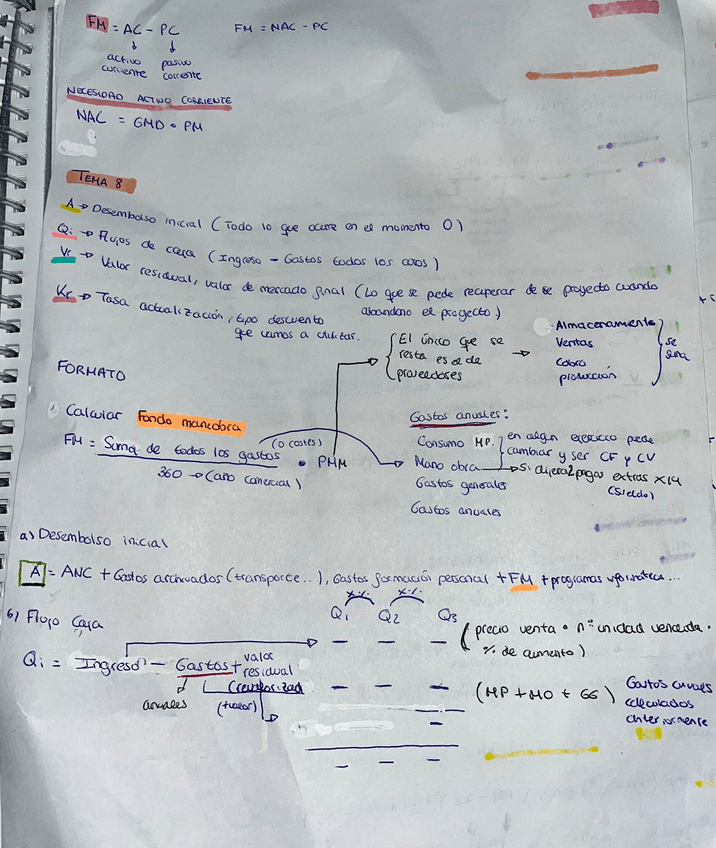 FM = AC - PC
FM = NAC - PC
activo corriente
pasivo corriente
NECESIDAD ACTIVO CORRIENTE
NAC = GMD • PM
TEMA 8
A → Desembolso inicial (Todo lo que ocurre en el momento 0)
Qi → Flujos de caja (Ingreso - Gastos todos los años)
Vr → Valor residual, valor de mercado final (Lo que se pede recuperar de se proyecto cuando
abandono el proyecto)
Kr → Tasa actualización, tipo descuento
que vamos a utilizar.
El único que se
resta es el de
proveedores
→ Almacenamiento
Ventas
Cobro
producción
se suma
FORMATO
Calcular Fondo maniobra
FM = Suma de todos los gastos (o costes) • PMM
360 → (año comercial)
Gastos anuales:
Consumo MP.
Mano obra
en algún ejercicio pede
cambiar y ser CF y CV
→ Si dijera 2 pagas extras x14
(sueldo)
Gastos generales
Gastos anuales
a) Desembolso inicial
A = ANC + Gastos archivados (transporte..), Gastos formación personal + FM + programas informática...
b) Flujo Caja
x% x%
Q1 Q2 Q3
Qi = Ingreso - Gastos + valor residual
anuales
(precio venta • nº unidad vendida •
% de aumento)
(MP + MO + GG)
Gastos anuales
calculados
anteriormente